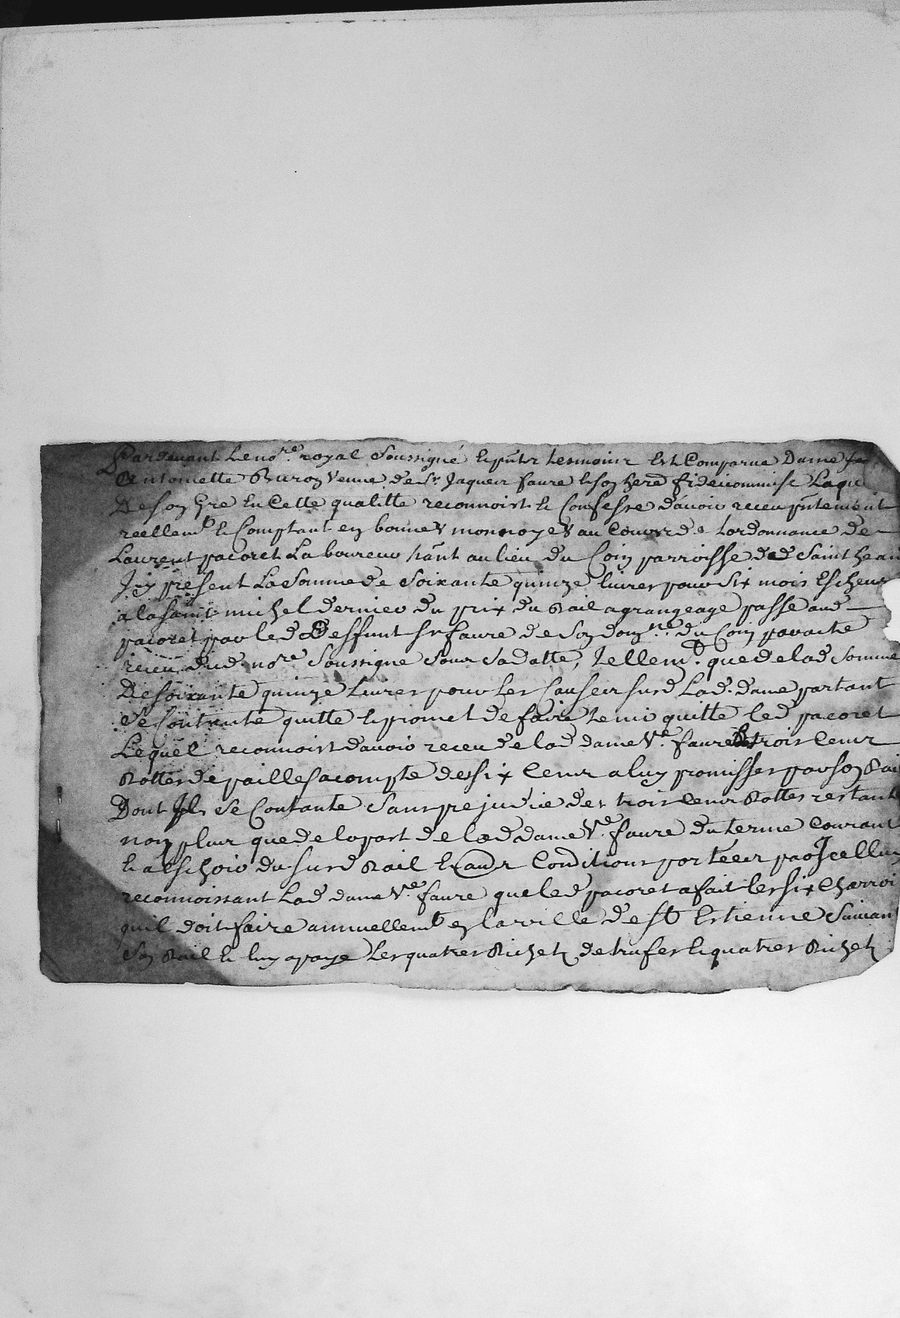 Pardevant Le no.re royal Soussigné & puñts tesmoins Est Comparue Dame
Antoinette Buron Veuve de Sr Jaques faure & son here fideicommise Laqu
De son Gre En Cette qualitte reconnoist & Confesse d'avoir receu pntement
reellemt & Comptant en bonnes monnoyes au Cours de Lordonnance de
Laurent pacoret Laboureur hant au lieu du Coin parroisse de Saint
Icy present La Somme de Soixante quinze livres pour six mois Escheus
a la saint michel dernier du prix du Bail a grangeage passe aud
pacoret par led Deffunt Sr faure de Son dom.ne du Coin
receu dud no.re Soussigne Sous Sa datte, Tellemt que de lad Somme
De Soixante quinze Livres pour Les Causes susd Lad. dame partant
Se Contante quitte & promet de faire tenir quitte led pacoret
Lequel reconnoist d'avoir receu de lad dame Ve faure trois Cens
Bottes de paille a compte de six Cens a luy promisses par son Bail
Dont Il Se Contante Sans prejudice des trois Cens Bottes restantes
non plus que de la part de lad dame Ve faure du terme Courant
& a Eschoir du susd Bail & aux Conditions portées par Icelluy
reconnoissant Lad dame Ve faure que led pacoret a fait les six Charroi
quil doit faire annuellemt en la ville de St Estienne Suivant
Son Bail & luy a paye Les quatres Bichets de trufes & quatres Bichets